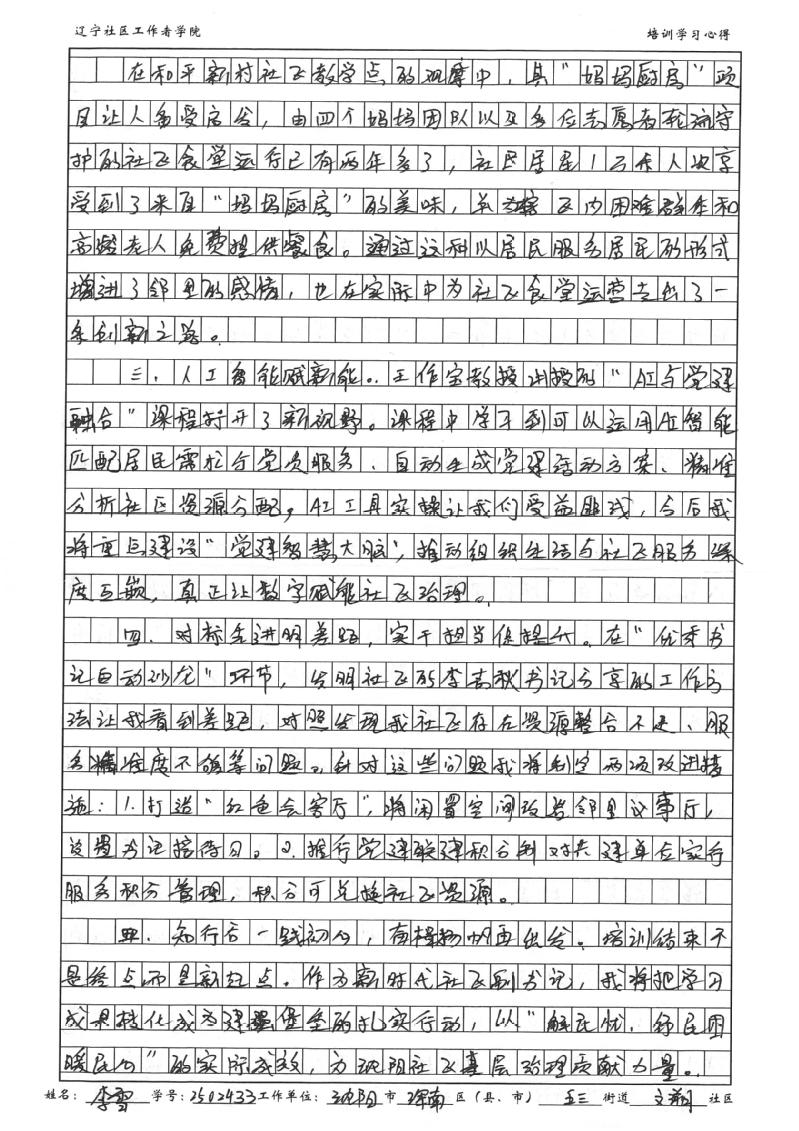 辽宁社区工作者学院 培训学习心得
在和平新村社区教学点的观摩中，其“妈妈厨房”项
目让人备受启发，由四个妈妈团队以及多位志愿者轮流守
护的社区食堂运行已有两年多了，社区居民1万余人次享
受到了来自“妈妈厨房”的美味，并为辖区内困难群体和
高龄老人免费提供餐食。通过这种以居民服务居民的形式
增进了邻里的感情，也在实际中为社区食堂运营走出了一
条创新之路。
三、人工智能赋新能。工作室教授讲授的“AI与党建
融合”课程打开了新视野。课程中学习到可以运用AI智能
匹配居民需求与党员服务、自动生成党建活动方案、精准
分析社区资源分配，AI工具实操让我们受益匪浅，今后我
将重点建设“党建智慧大脑”，推动组织生活与社区服务深
度互嵌，真正让数字赋能社区治理。
四、对标先进明差距，实干担当促提升。在“优秀书
记自动沙龙”环节，发明社区的李春秋书记分享的工作方
法让我看到差距，对照发现我社区存在资源整合不足、服
务精准度不够等问题。针对这些问题我将制定两项改进措
施：1.打造“红色会客厅”，将闲置空间改造邻里议事厅，
设置书记接待日。2.推行党建联建积分制对共建单位实行
服务积分管理，积分可兑换社区资源。
五、知行合一践初心，再扬帆再出发。培训结束不
是终点而是新起点。作为新时代社区副书记，我将把学习
成果转化成为建强堡垒的扎实行动，以“解民忧、纾民困
暖民心”的实际成效，为沈阳社区基层治理贡献力量。
姓名：李雪 学号：2502433 工作单位：沈阳市 浑南区（县、市） 五三街道 文翔社区